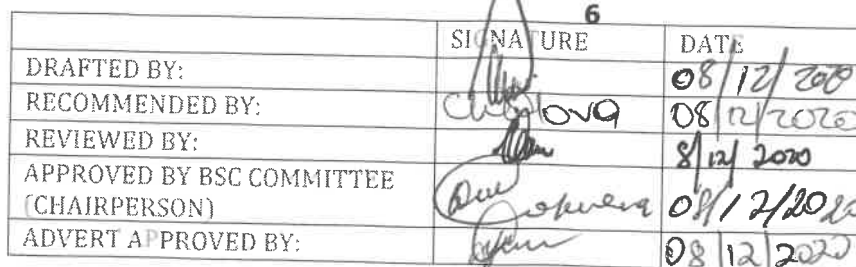 6
SIGNATURE DATE
DRAFTED BY: 08/12/2020
RECOMMENDED BY: 08/12/2020
REVIEWED BY: 8/12/2020
APPROVED BY BSC COMMITTEE
(CHAIRPERSON) 08/12/2020
ADVERT APPROVED BY: 08/12/2020